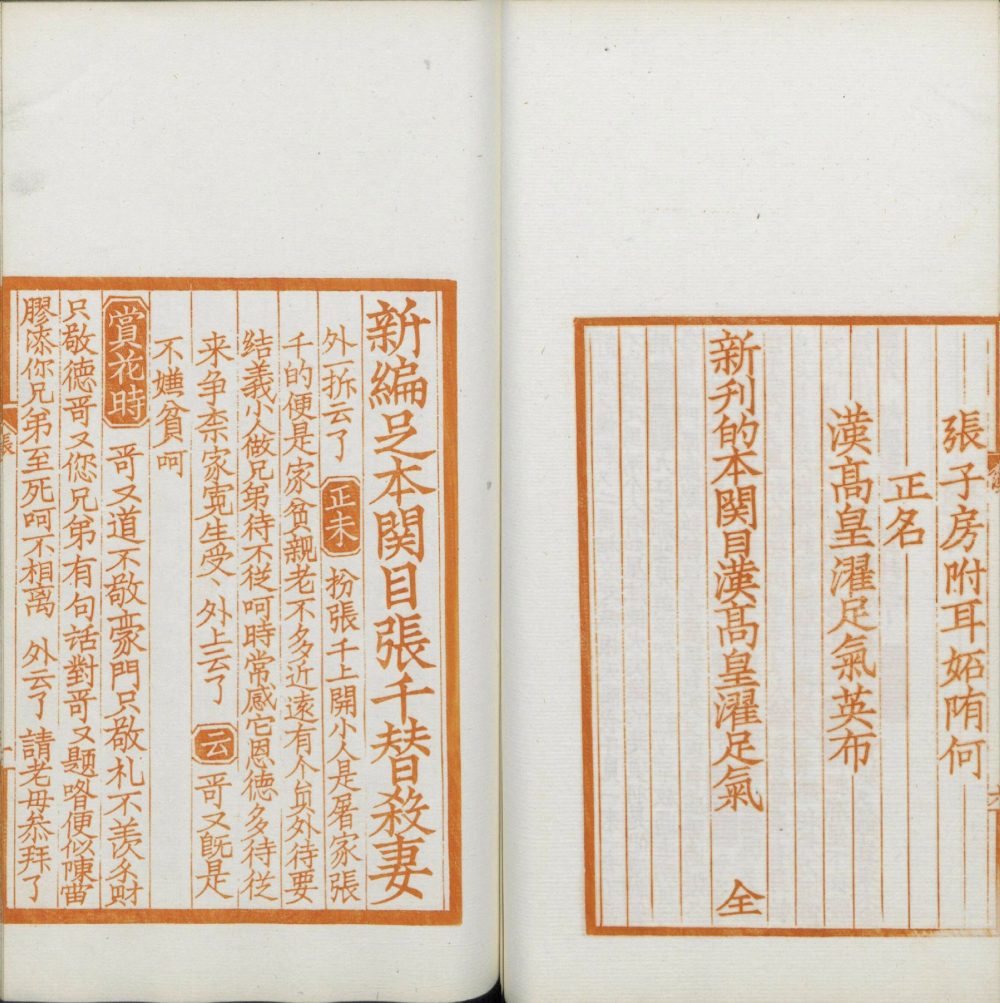 張子房附耳妬隋何
正名
漢髙皇濯足氣英布
新刋的本関目漢髙皇濯足氣　全
新編足本関目張千替殺妻
外一折云了　正末　扮張千上開小人是屠家張
千的便是家貧親老不多近遠有个貟外待要
結義小人做兄弟待不從呵時常感它恩德多待從
来争柰家寃生受〻外上云了　云　哥又旣是
不嫌貧呵
賞花時　哥又道不敬豪門只敬札不羡多財
只敬德哥又您兄弟有句話對哥又題咱便似陳雷
膠漆你兄弟至死呵不相离　外云了　請老母恭拜了
張